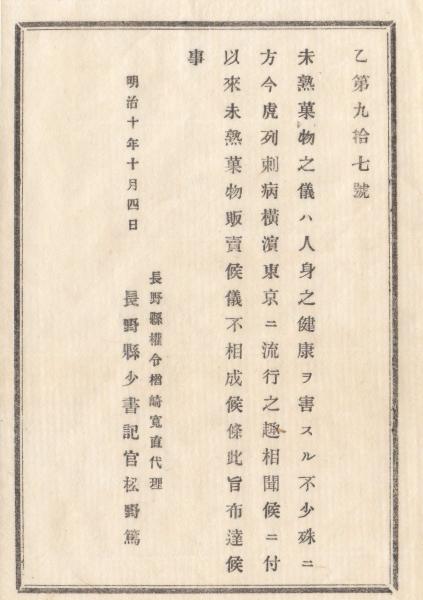 乙第九拾七號
未熟菓物之儀ハ人身之健康ヲ害スル不少殊ニ
方今虎列刺病横濱東京ニ流行之趣相聞候ニ付
以來未熟菓物販賣候儀不相成候條此旨布達候
事
明治十年十月四日
長野縣權令楢崎寛直代理
長野縣少書記官松野篤